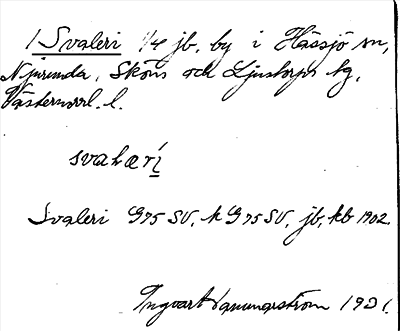 1 Svaleri 1/4 jb. by i Hässjö sn,
Njurunda, Sköns och Ljustorps tg,
Västernorrl. l.
svaləri
Svaleri G95 SV. k G95 SV, jb, kb 1902.
Ingvart 1931.